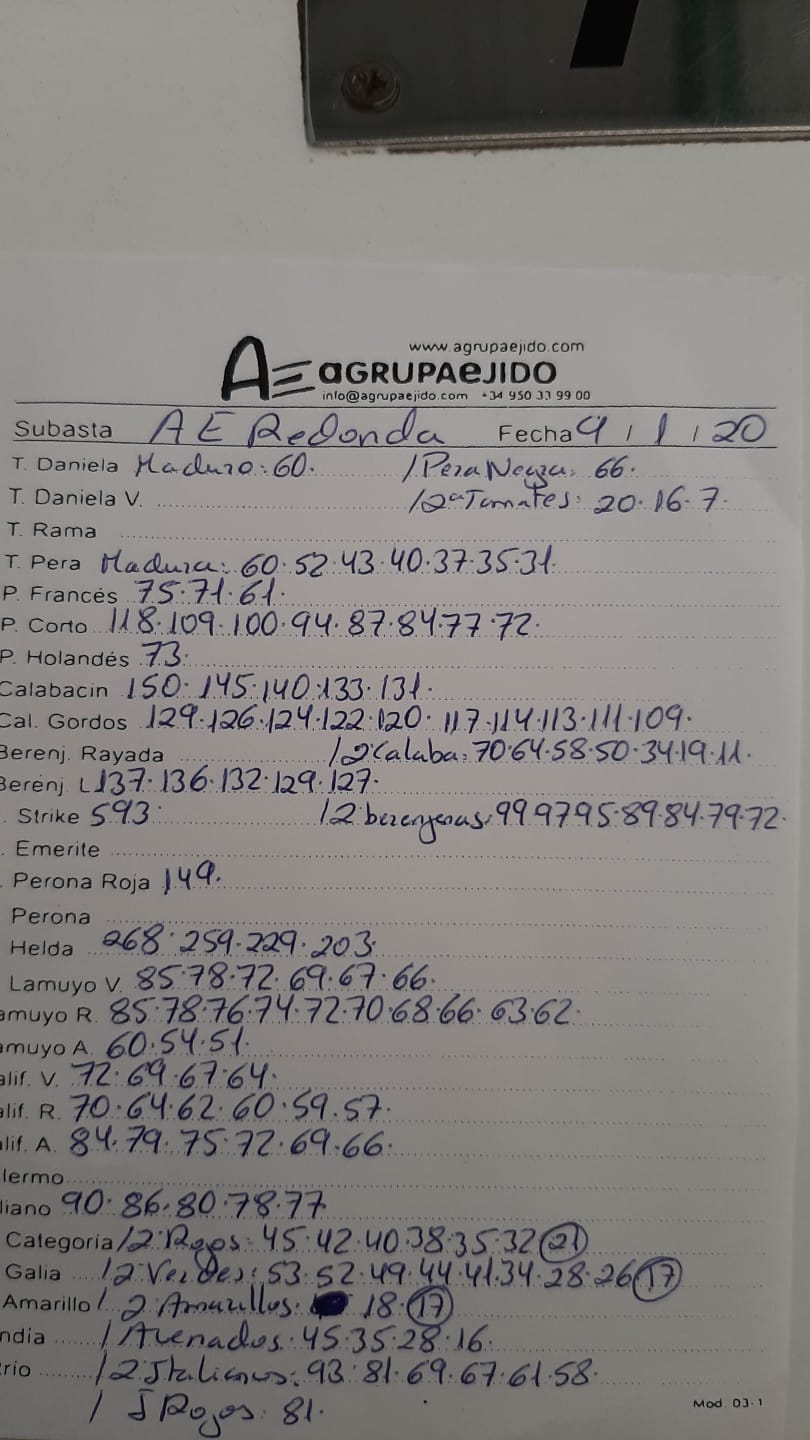 www.agrupaejido.com
AE aGRUPAeJIDO
info@agrupaejido.com +34 950 33 99 00
Subasta AE Redonda Fecha 9 / 1 / 20
T. Daniela Maduro: 60. / Pera Negra: 66.
T. Daniela V. / 2ª Tomates: 20. 16. 7.
T. Rama
T. Pera Madura: 60. 52. 43. 40. 37. 35. 31.
P. Francés 75. 71. 61.
P. Corto 118. 109. 100. 94. 87. 84. 77. 72.
P. Holandés 73.
Calabacin 150. 145. 140. 133. 131.
Cal. Gordos 129. 126. 124. 122. 120. 117. 114. 113. 111. 109.
Berenj. Rayada / 2 Calaba: 70. 64. 58. 50. 34. 19. 11.
Berenj. L 137. 136. 132. 129. 127.
. Strike 593. / 2 berenjenas: 99. 97. 95. 89. 84. 79. 72.
. Emerite
. Perona Roja 149.
Perona
Helda 268. 259. 229. 203.
Lamuyo V. 85. 78. 72. 69. 67. 66.
amuyo R. 85. 78. 76. 74. 72. 70. 68. 66. 63. 62.
amuyo A. 60. 54. 51.
alif. V. 72. 69. 67. 64.
alif. R. 70. 64. 62. 60. 59. 57.
alif. A. 84. 79. 75. 72. 69. 66.
lermo
liano 90. 86. 80. 78. 77
Categoría / 2 Rojos: 45. 42. 40. 38. 35. 32 (21)
Galia / 2 Verdes: 53. 52. 49. 44. 41. 34. 28. 26 (17)
Amarillo / 2 Amarillos: 18. (17)
ndia / Avenados: 45. 35. 28. 16.
rio / 2 Italianos: 93. 81. 69. 67. 61. 58.
/ J Rojos: 81.
Mod. 03-1